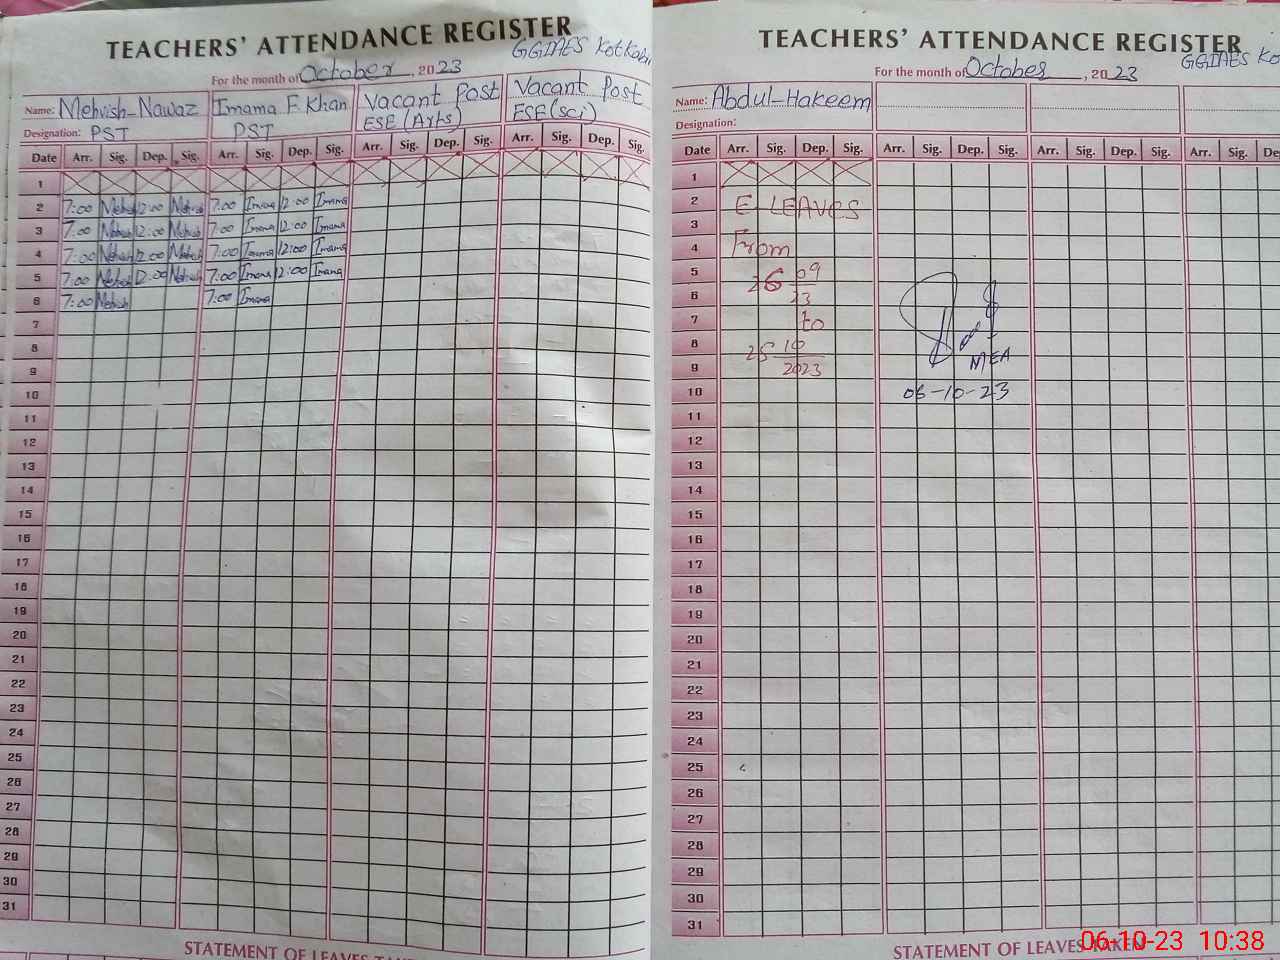 TEACHERS' ATTENDANCE REGISTER
GGIAES KotKabi
For the month of October, 2023
Name: Mehvish-Nawaz Imama F. Khan Vacant Post Vacant Post
Designation: PST PST ESE (Arts) ESE (sci)
Date Arr. Sig. Dep. Sig. Arr. Sig. Dep. Sig. Arr. Sig. Dep. Sig. Arr. Sig. Dep. Sig.
1
2 7:00 Mehvish 12:00 Mehvish 7:00 Imama 12:00 Imama
3 7:00 Mehvish 12:00 Mehvish 7:00 Imama 12:00 Imama
4 7:00 Mehvish 12:00 Mehvish 7:00 Imama 12:00 Imama
5 7:00 Mehvish 12:00 Mehvish 7:00 Imama 12:00 Imama
6 7:00 Mehvish 7:00 Imama
7
8
9
10
11
12
13
14
15
16
17
18
19
20
21
22
23
24
25
26
27
28
29
30
31
STATEMENT OF LEAVES TAKEN
TEACHERS' ATTENDANCE REGISTER
GGIAES Ko
For the month of October, 2023
Name: Abdul-Hakeem
Designation:
Date Arr. Sig. Dep. Sig. Arr. Sig. Dep. Sig. Arr. Sig. Dep. Sig. Arr. Sig. De
1
2 E-LEAVES
3
4 From
5 26 09
6 23
7 to
8 25 10
9 2023 MEA
10 06-10-23
11
12
13
14
15
16
17
18
19
20
21
22
23
24
25
26
27
28
29
30
31
STATEMENT OF LEAVES TAKEN
06-10-23 10:38